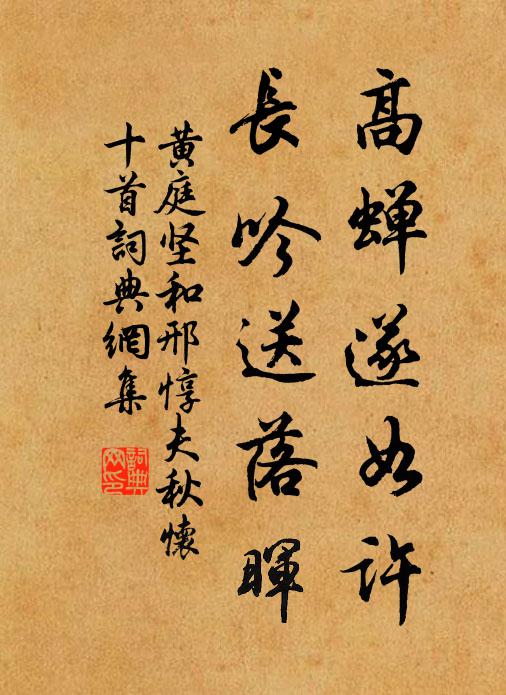 高蝉遂如許
長吟送落暉
黄庭坚和邢惇夫秋懷
十首詞典網集
詞典
网印